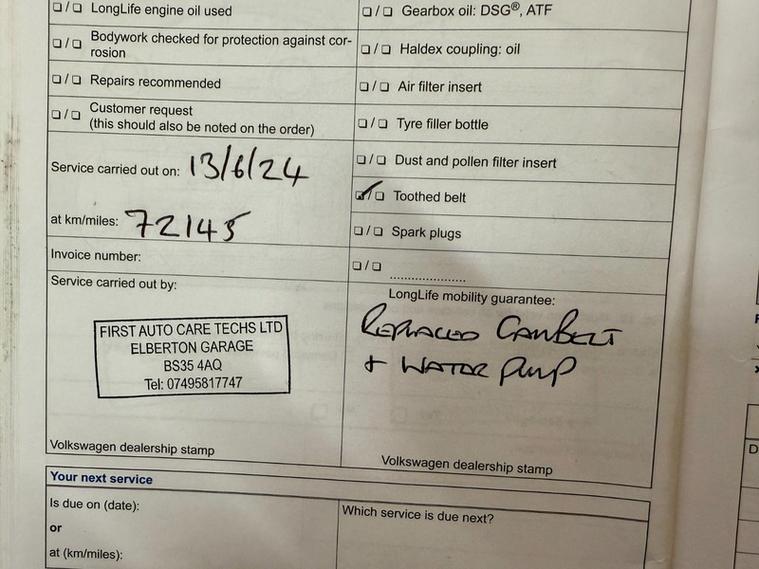 ☐/☐ LongLife engine oil used
☐/☐ Bodywork checked for protection against cor-
rosion
☐/☐ Repairs recommended
☐/☐ Customer request
(this should also be noted on the order)
Service carried out on: 13/6/24
at km/miles: 72145
Invoice number:
Service carried out by:
FIRST AUTO CARE TECHS LTD
ELBERTON GARAGE
BS35 4AQ
Tel: 07495817747
Volkswagen dealership stamp
☐/☐ Gearbox oil: DSG®, ATF
☐/☐ Haldex coupling: oil
☐/☐ Air filter insert
☐/☐ Tyre filler bottle
☐/☐ Dust and pollen filter insert
☑/☐ Toothed belt
☐/☐ Spark plugs
☐/☐ ....................
LongLife mobility guarantee:
REPLACED CAMBELT
+ WATER PUMP
Volkswagen dealership stamp
Your next service
Is due on (date):
or
at (km/miles):
Which service is due next?